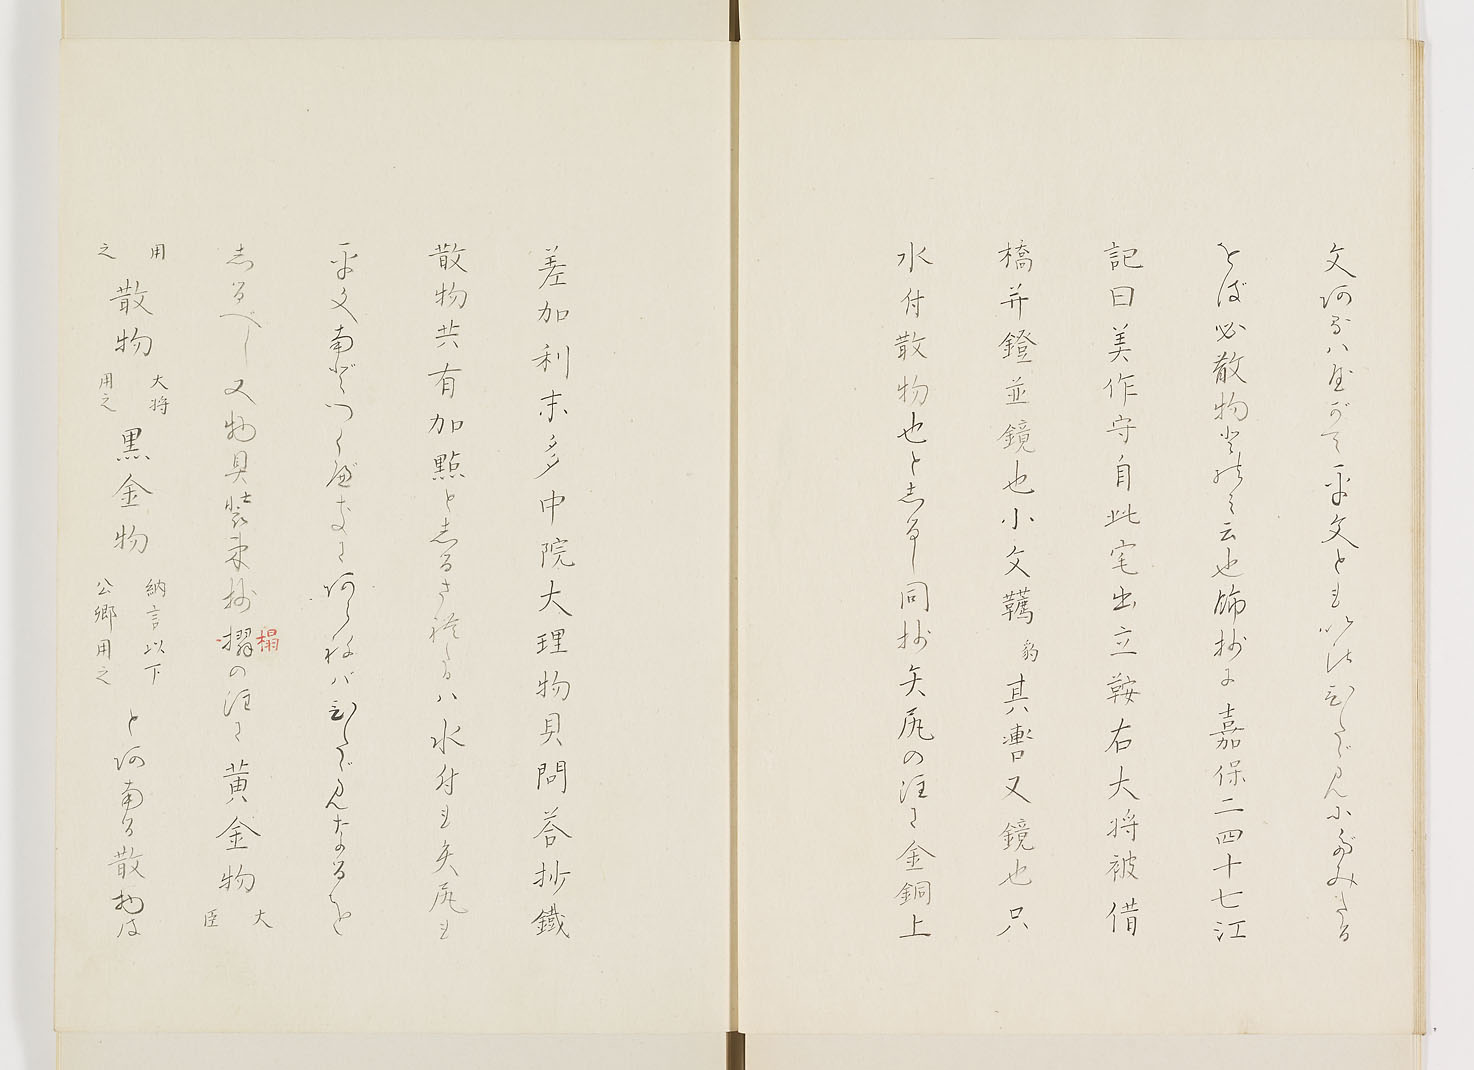 文阿るハ壓がて平文とも以はひしがんにだみたる
をば必散物とのミ云也餝抄に嘉保二四十七江
記曰美作守自此宅出立鞍右大将被借
橋并鐙並鏡也小文韉豹其轡又鏡也只
水付散物也としるし同抄矢尻の注に金銅上
差加利末多中院大理物具問答抄鐵
散物共有加點としるされたるハ水付も矢尻も
平文南どつくべきに阿らねバひしがんなるをと
しるべし又物具装束抄摺榻の注に黄金物大臣
用之散物大将用之黒金物納言以下公卿用之と阿南る散物は